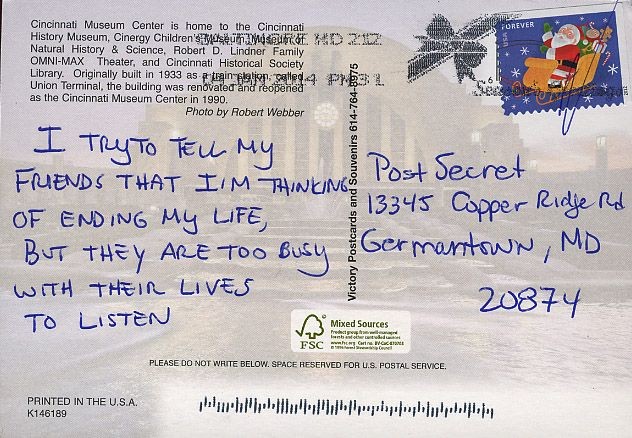 Cincinnati Museum Center is home to the Cincinnati
History Museum, Cinergy Children's Museum, Museum of
Natural History & Science, Robert D. Lindner Family
OMNI-MAX Theater, and Cincinnati Historical Society
Library. Originally built in 1933 as a train station called
Union Terminal, the building was renovated and reopened
as the Cincinnati Museum Center in 1990.
Photo by Robert Webber
MD 212
2014 PM 3 1
FOREVER
I TRY TO TELL MY
FRIENDS THAT I'M THINKING
OF ENDING MY LIFE,
BUT THEY ARE TOO BUSY
WITH THEIR LIVES
TO LISTEN
Victory Postcards and Souvenirs 614-764-8975
Post Secret
13345 Copper Ridge Rd
Germantown, MD
20874
FSC
Mixed Sources
Product group from well-managed
forests and other controlled sources
PLEASE DO NOT WRITE BELOW. SPACE RESERVED FOR U.S. POSTAL SERVICE.
PRINTED IN THE U.S.A.
K146189